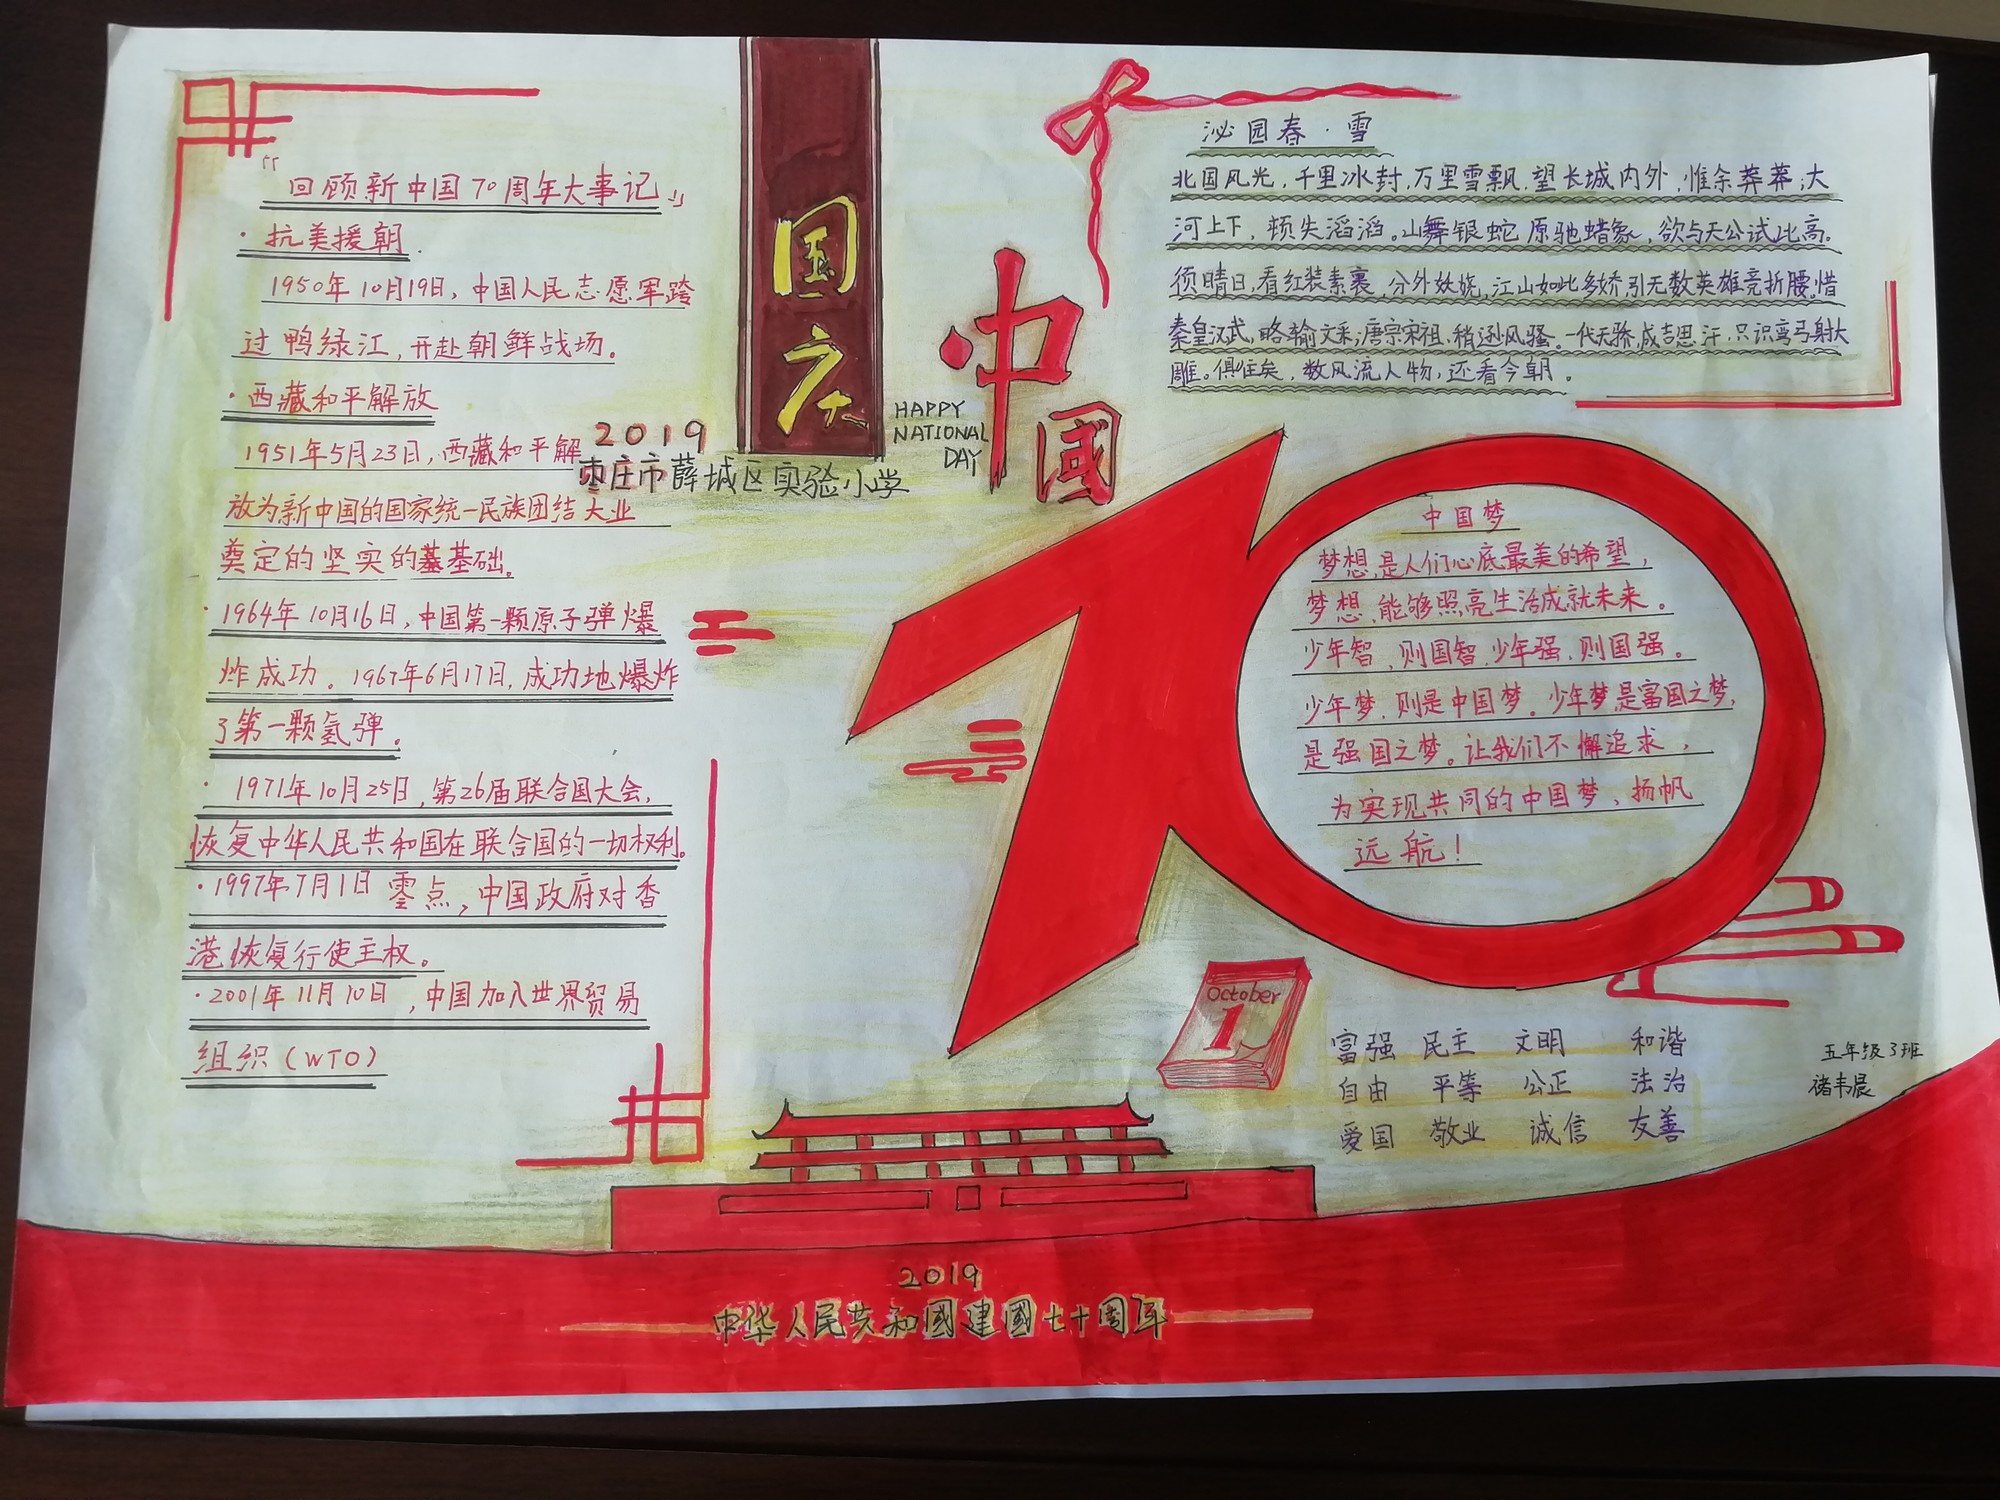 “回顾新中国70周年大事记”
·抗美援朝.
1950年10月19日,中国人民志愿军跨
过鸭绿江,开赴朝鲜战场。
·西藏和平解放
1951年5月23日,西藏和平解
放为新中国的国家统一民族团结大业
奠定的坚实的基础。
·1964年10月16日,中国第一颗原子弹爆
炸成功。1967年6月17日,成功地爆炸
了第一颗氢弹。
·1971年10月25日,第26届联合国大会,
恢复中华人民共和国在联合国的一切权利。
·1997年7月1日零点,中国政府对香
港恢复行使主权。
·2001年11月10日,中国加入世界贸易
组织(WTO)
国庆
2019
枣庄市薛城区实验小学
HAPPY
NATIONAL
DAY
中國
泌园春·雪
北国风光,千里冰封,万里雪飘,望长城内外,惟余莽莽;大
河上下,顿失滔滔。山舞银蛇原驰蜡象,欲与天公试比高。
须晴日,看红装素裹,分外妖娆,江山如此多娇,引无数英雄竞折腰,惜
秦皇汉武,略输文采;唐宗宋祖,稍逊风骚。一代天骄,成吉思汗,只识弯弓射大
雕。俱往矣,数风流人物,还看今朝。
70
中国梦
梦想,是人们心底最美的希望,
梦想,能够照亮生活成就未来。
少年智,则国智,少年强,则国强。
少年梦,则是中国梦。少年梦,是富国之梦,
是强国之梦。让我们不懈追求,
为实现共同的中国梦、扬帆
远航!
October
1
富强 民主 文明 和谐
自由 平等 公正 法治
爱国 敬业 诚信 友善
五年级3班
褚韦晨
2019
中华人民共和國建國七十周年